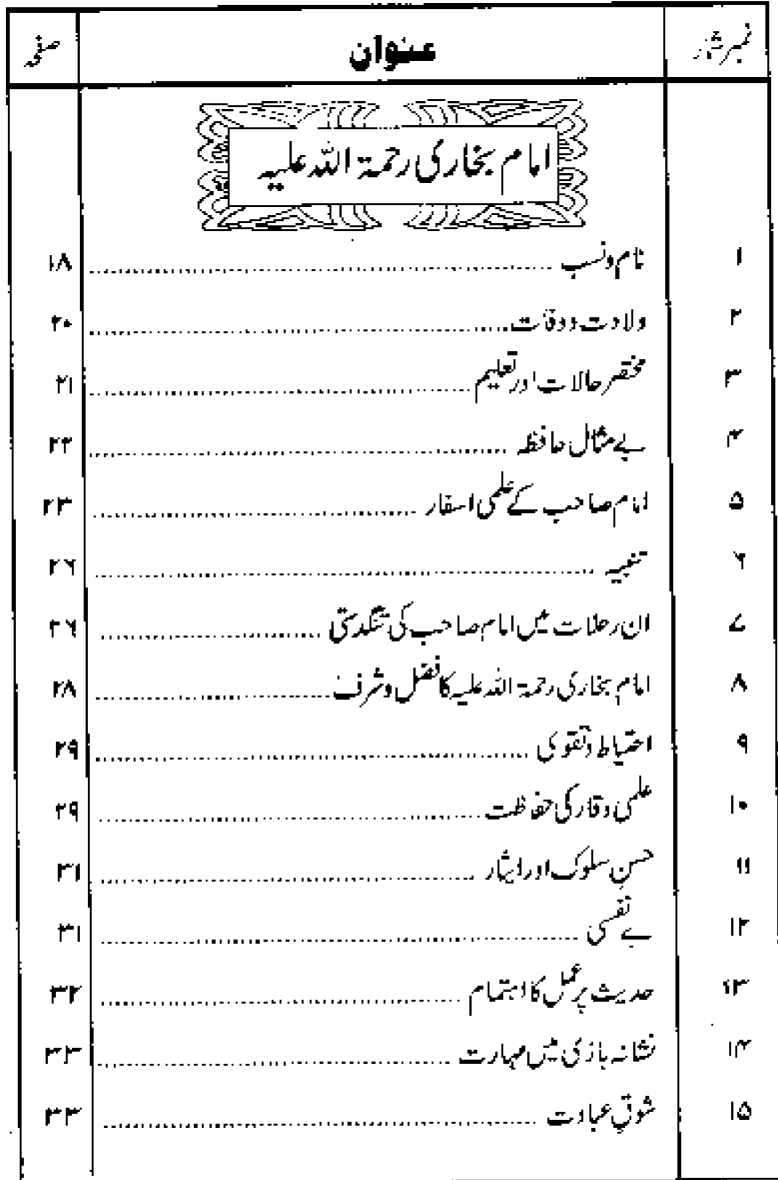 نمبر شمار عنوان صفحہ
امام بخاری رحمۃ اللہ علیہ
۱ نام ونسب ۱۸
۲ ولادت ووفات ۲۰
۳ مختصر حالات اور تعلیم ۲۱
۴ بے مثال حافظہ ۲۲
۵ امام صاحب کے علمی اسفار ۲۳
۶ تنبیہ ۲۶
۷ ان رحلات میں امام صاحب کی تنگدستی ۲۶
۸ امام بخاری رحمۃ اللہ علیہ کا فضل وشرف ۲۸
۹ احتیاط وتقوی ۲۹
۱۰ علمی وقار کی حفاظت ۲۹
۱۱ حسنِ سلوک اور ایثار ۳۱
۱۲ بے نفسی ۳۱
۱۳ حدیث پر عمل کا اہتمام ۳۲
۱۴ نشانہ بازی میں مہارت ۳۳
۱۵ شوقِ عبادت ۳۳